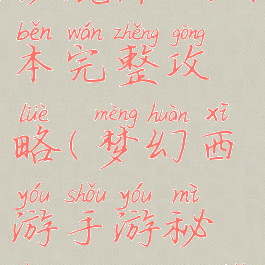 běn wán zhěng gōng
本完整攻
lüè mèng huàn xī
略(梦幻西
yóu shǒu yóu mì
游手游秘